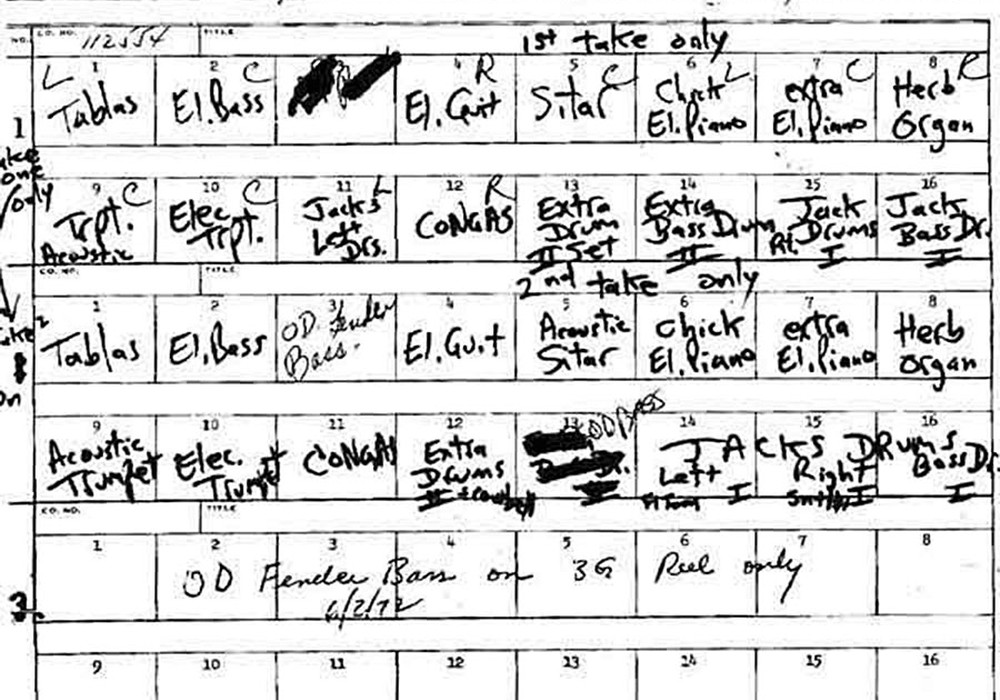 NO. CO. NO. 112554 TITLE 1st take only
1 2 4 5 6 7 8
L C R C L C R
Tablas El. Bass El. Guit Sitar Chick El. Piano extra El. Piano Herb Organ
1
take one only
9 10 11 12 13 14 15 16
C C L R
Trpt. Acoustic Elec. Trpt. Jack's Left Drs. CONGAS Extra Drum II Set Extra Bass Drum II Jack Rt. Drums I Jack Bass Dr. I
CO. NO. TITLE 2nd take only
1 2 3 4 5 6 7 8
Tablas El. Bass OD Fender Bass. El. Guit Acoustic Sitar Chick El. Piano extra El. Piano Herb Organ
take 2
on
9 10 11 12 13 14 15 16
Acoustic Trumpet Elec. Trumpet CONGAS Extra Drums II OD BASS Bass Dr. JACKS DRums
Left I Right I Bass Dr. I
Fl Tom
CO. NO. TITLE
1 2 3 4 5 6 7 8
OD Fender Bass on 3G Reel only
6/2/72
3
9 10 11 12 13 14 15 16